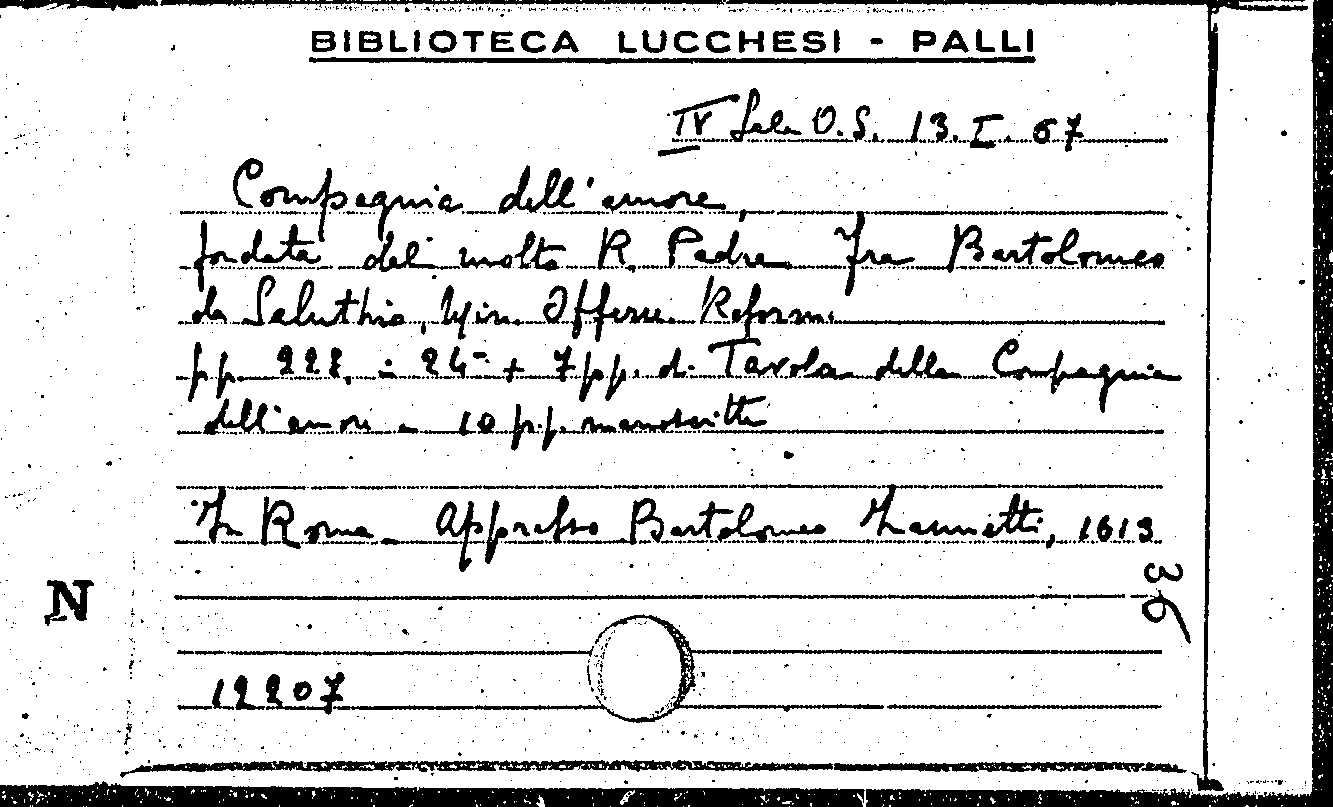 BIBLIOTECA LUCCHESI - PALLI
IV Sala O.S. 13. I. 67
Compagnia dell'amore,
fondata dal molto R. Padre Fra Bartolomeo
da Saluthio, Min. Osserv. Reform.
pp. 222. = 24- + 7 pp. di Tavola della Compagnia
dell'amore - 10 pp. manoscritte
In Roma - Appresso Bartolomeo Zannetti, 1613
36
N
12207